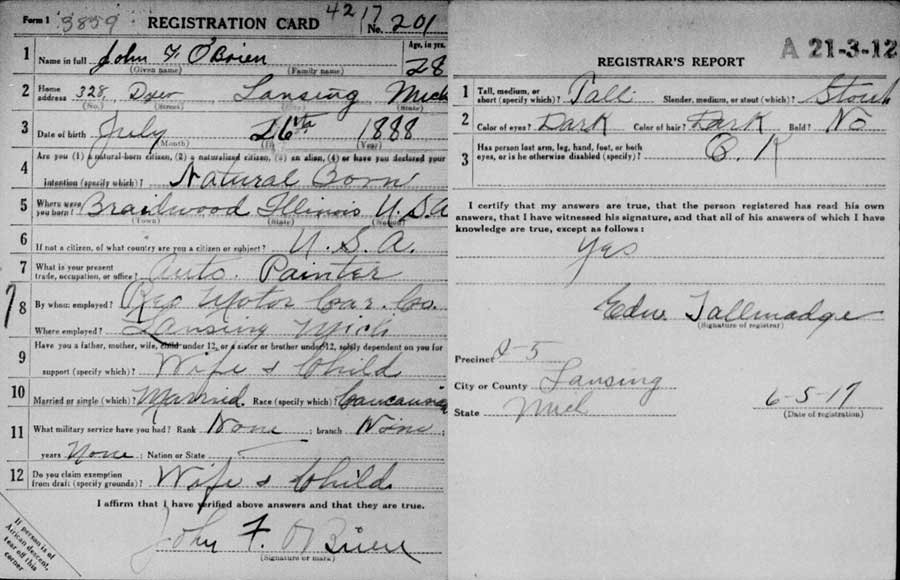 Form 1 3859 REGISTRATION CARD 42 17 No. 201
1 Name in full John F. O'Brien Age, in yrs. 28
(Given name) (Family name)
2 Home address 328 Dyer Lansing Mich
(No.) (Street) (City) (State)
3 Date of birth July 26th 1888
(Month) (Day) (Year)
4 Are you (1) a natural-born citizen, (2) a naturalized citizen, (3) an alien, (4) or have you declared your
intention (specify which)? Natural Born
5 Where were you born? Braidwood Illinois U.S.A
(Town) (State) (Nation)
6 If not a citizen, of what country are you a citizen or subject? U.S.A.
7 What is your present trade, occupation, or office? Auto. Painter
8 By whom employed? Reo Motor Car. Co.
Where employed? Lansing Mich
9 Have you a father, mother, wife, child under 12, or a sister or brother under 12, solely dependent on you for
support (specify which)? Wife & Child
10 Married or single (which)? Married. Race (specify which)? Caucausian
11 What military service have you had? Rank None ; branch None ;
years None ; Nation or State
12 Do you claim exemption from draft (specify grounds)? Wife & Child
I affirm that I have verified above answers and that they are true.
John F. O'Brien
(Signature or mark)
If person is of
African descent,
tear off this
corner
A 21-3-12
REGISTRAR'S REPORT
1 Tall, medium, or short (specify which)? Tall Slender, medium, or stout (which)? Stout
2 Color of eyes? Dark Color of hair? Dark Bald? No
3 Has person lost arm, leg, hand, foot, or both eyes, or is he otherwise disabled (specify)? O. K
I certify that my answers are true, that the person registered has read his own
answers, that I have witnessed his signature, and that all of his answers of which I have
knowledge are true, except as follows:
Yes
Edw. Tallmadge
(Signature of registrar)
Precinct 2-5
City or County Lansing
State Mich
6-5-17
(Date of registration)